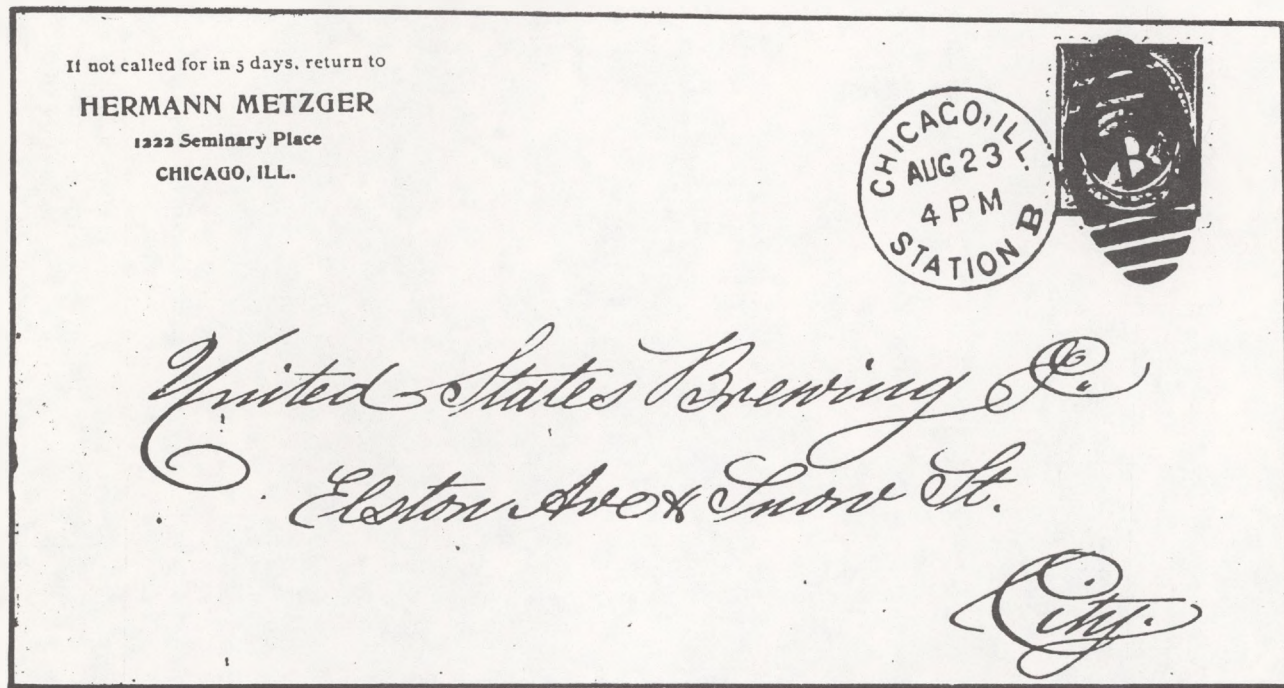 If not called for in 5 days, return to
HERMANN METZGER
1222 Seminary Place
CHICAGO, ILL.
CHICAGO, ILL.
AUG 23
4 PM
STATION B
B
United States Brewing Co.
Elston Ave & Snow St.
City.